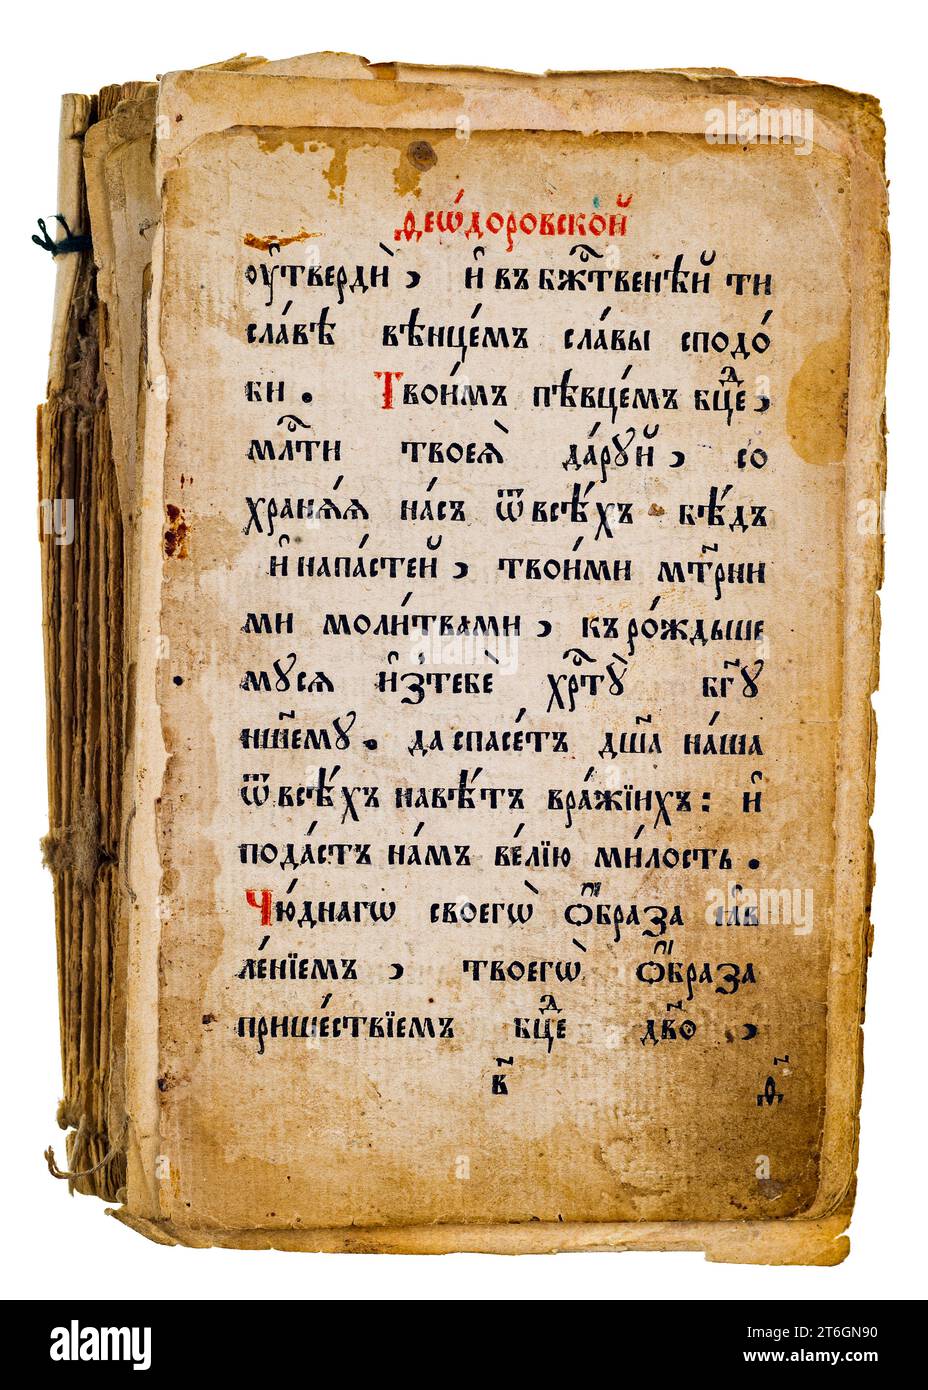 Деѡ́доровской
оу҆твердѝ, и҆ въ бж҃твенѣй ти
сла́вѣ вѣнце́мъ сла́вы сподо́
би. Твои́мъ пѣвце́мъ бцⷣе,
мл҃ти твоеѧ̀ да́руй, со
хранѧ́ѧ на́съ ѿ всѣ́хъ бѣ́дъ
и҆ напа́стей, твои́ми мт҃рни
ми моли́твами, къ ро́ждьше
мусѧ и҆з̾ тебѐ хрⷭ҇ту̀ бг҃у
нш҃ему. да спасе́тъ дш҃а на́ша
ѿ всѣ́хъ навѣ́тъ вра́жїихъ: и҆
пода́стъ на́мъ ве́лїю ми́лость.
Чю́днагѡ своегѡ̀ ѻ҆́браза ꙗ҆в
ле́нїемъ, твоегѡ̀ ѻ҆́браза
прише́ствїемъ бцⷣе дв҃о,
в҃ д҃
alamy
Image ID: 2T6GN90
www.alamy.com